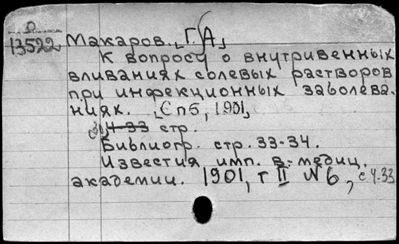 О
13522 Макаров. [Г. А]
К вопросу о внутривенных
вливаниях солевых растворов
при инфекционных заболева-
ниях. [Спб, 1901]
4-33 стр.
Библиогр. стр. 33-34.
Известия имп. в.-медиц.
академии. 1901, т II №6, с 4-33